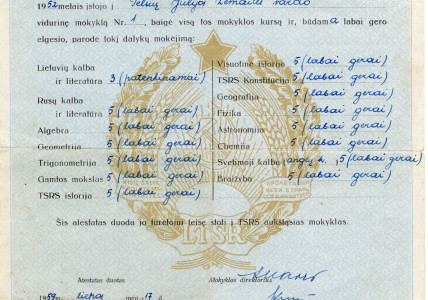 1952 metais įstojo į Telšių Julijos Žemaitės vardo
vidurinę mokyklą Nr. 1, baigė visą tos mokyklos kursą ir, būdama labai gero
elgesio, parodė tokį dalykų mokėjimą:
Lietuvių kalba
ir literatūra 3 (patenkinamai)
Rusų kalba
ir literatūra 5 (labai gerai)
Algebra 5 (labai gerai)
Geometrija 5 (labai gerai)
Trigonometrija 5 (labai gerai)
Gamtos mokslas 5 (labai gerai)
TSRS istorija 5 (labai gerai)
Visuotinė istorija 5 (labai gerai)
TSRS Konstitucija 5 (labai gerai)
Geografija 5 (labai gerai)
Fizika 5 (labai gerai)
Astronomija 5 (labai gerai)
Chemija 5 (labai gerai)
Svetimoji kalba (anglų k.) 5 (labai gerai)
Braižyba 5 (labai gerai)
Šis atestatas duoda jo turėtojui teisę stoti į TSRS aukštąsias mokyklas.
LTSR
Atestatas duotas
Mokyklos direktorius
1959 m. liepos mėn. 17 d.